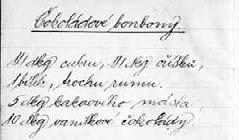 Čokoládové bonbony.
11 dkg cukru, 11 dkg oříšků,
1 bílek, trochu rumu.
5 dkg kakaového másla
10 dkg vanilkové čokolády.